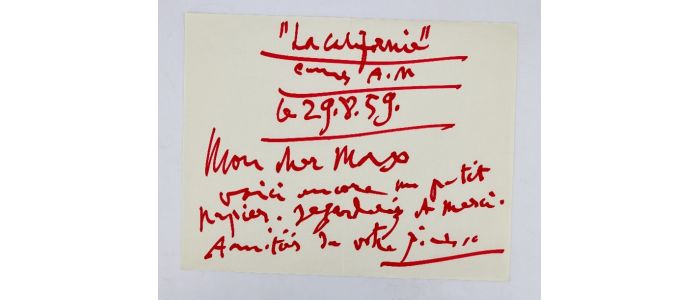 "La Californie"
Cannes A.M
le 29.8.59.
Mon cher Max
voici encore un petit
papier. regardez et merci.
Amitiés de votre Picasso